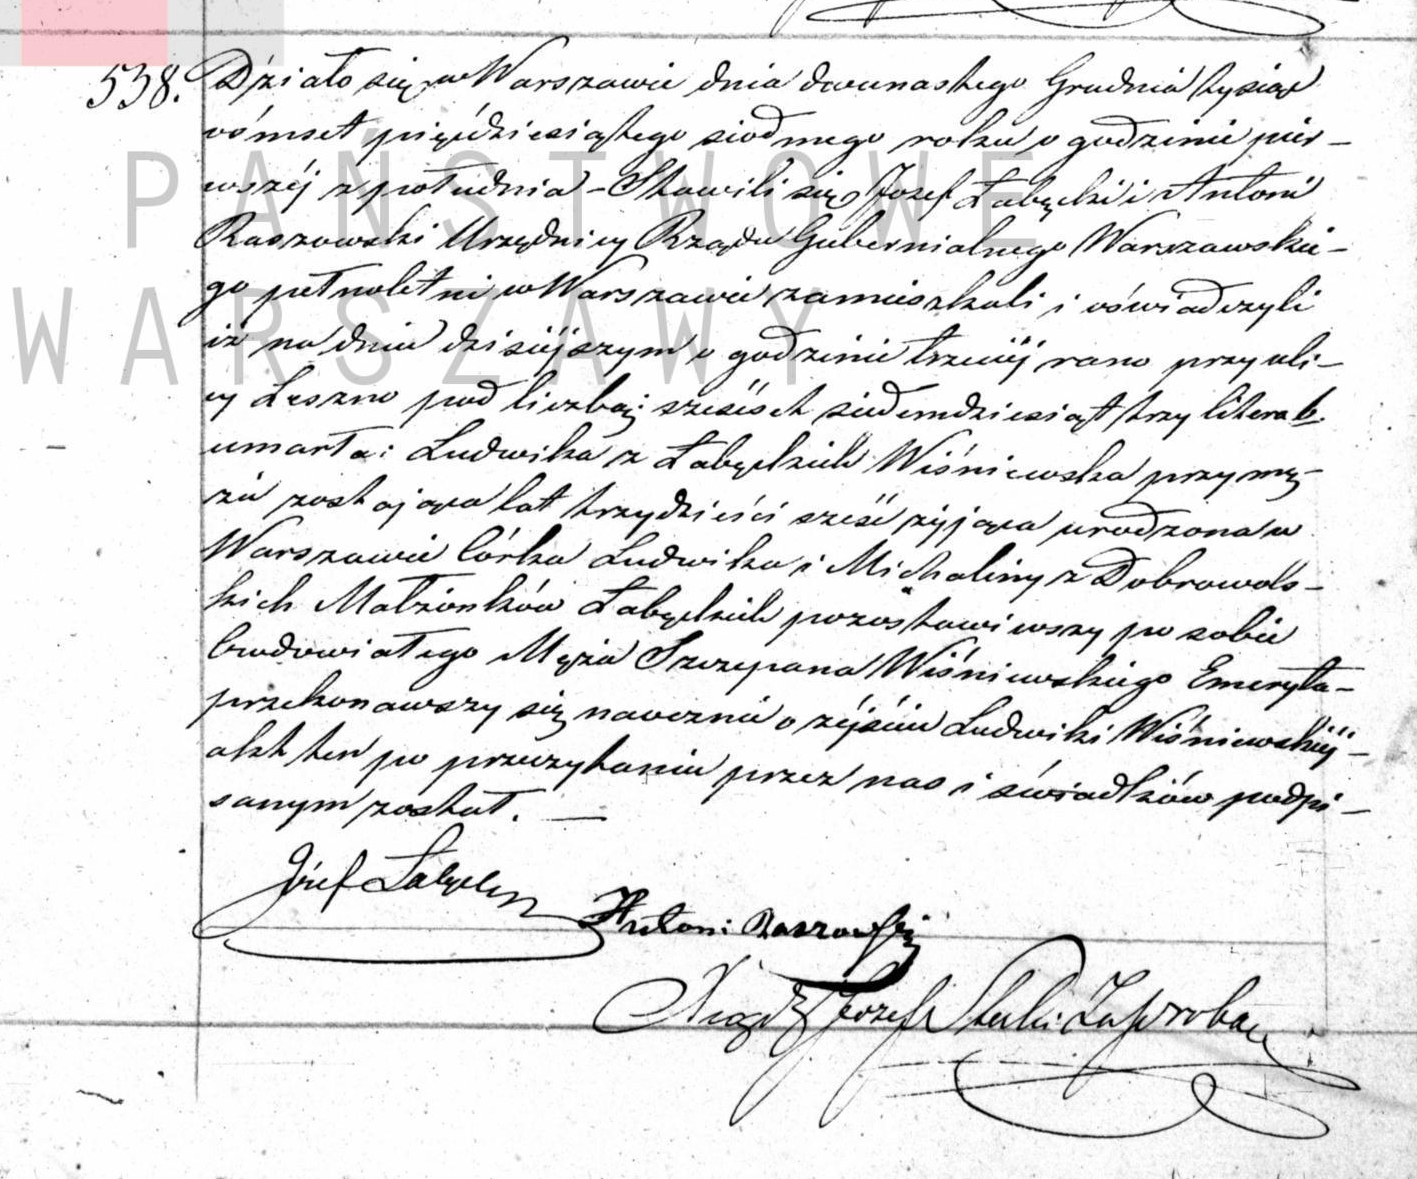 538. Działo się w Warszawie dnia dwunastego Grudnia tysiąc
ośmset pięćdziesiątego siodmego roku o godzinie pier-
wszéj z południa – Stawili się Jozef Łabęcki i Antoni
Raszowski Urzędnicy Rządu Gubernialnego Warszawskie-
go pełnoletni w Warszawie zamieszkali i oświadczyli
iż na dniu dzisiéjszym o godzinie trzeciéj rano przy uli-
cy Leszno pod liczbą sześćset siedemdziesiąt trzy litera b.
umarła: Ludwika z Łabęckich Wiśniewska przy mę-
żu zostająca lat trzydzieści sześć żyjąca urodzona w
Warszawie Córka Ludwika i Michaliny z Dobrowols-
kich Małżonków Łabęckich pozostawiwszy po sobie
owdowiałego Męża Szczepana Wiśniewskiego Emeryta-
przekonawszy się naocznie o zéjściu Ludwiki Wiśniewskiéj-
akt ten po przeczytaniu przez nas i świadków podpi-
sanym został. —
Józef Łabęcki
Antoni Raszowski
X Jozef
PAŃSTWOWE
WARSZAWY